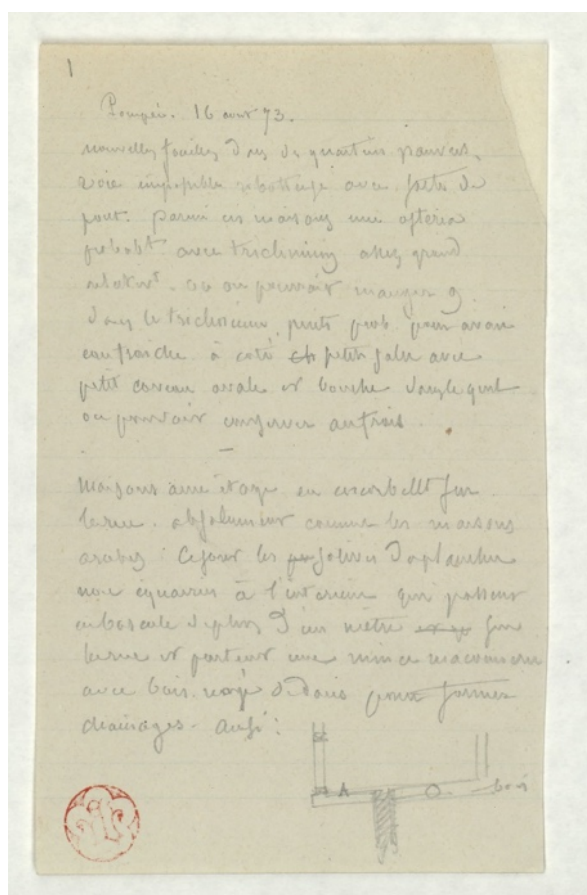 1
Pompéi. 16 aout 73.
nouvelles fouilles dans des quartiers pauvres,
voie impossible avec sorte de
pont. parmi ces maisons une osteria
probablt avec triclinium assez grand
relativt. où on pouvait manger 9
dans le triclinium, puits pour avoir
eau fraiche à coté petite salle avec
petit caveau ovale et bouche dans lequel
on pouvait conserver au frais.
–
Maisons à une étage en encorbellt sur
la rue. absolument comme les maisons
arabes. Ce sont les solives du plancher
non équarries à l'interieur qui passent
en bascule de plus d'un mètre sur
la rue et portent une mince maçonnerie
avec bois dedans pour former
chainages. Ainsi:
A
bois